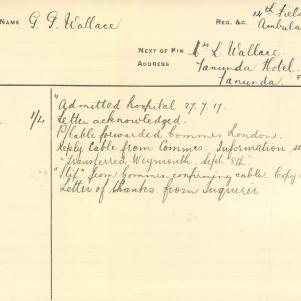 NAME G. G. Wallace REG. &c. 14th Field
Ambula
NEXT OF KIN Mrs L. Wallace.
ADDRESS Tanunda Hotel.
Tanunda.
"Admitted hospital 27.7.17.
1/2 Letter acknowledged.
P/Cable forwarded Commrs London.
Reply Cable from Commrs. Information
"Transferred Weymouth Sept 8th."
from Commrs. confirming cable. Copy
Letter of thanks from Inquirer